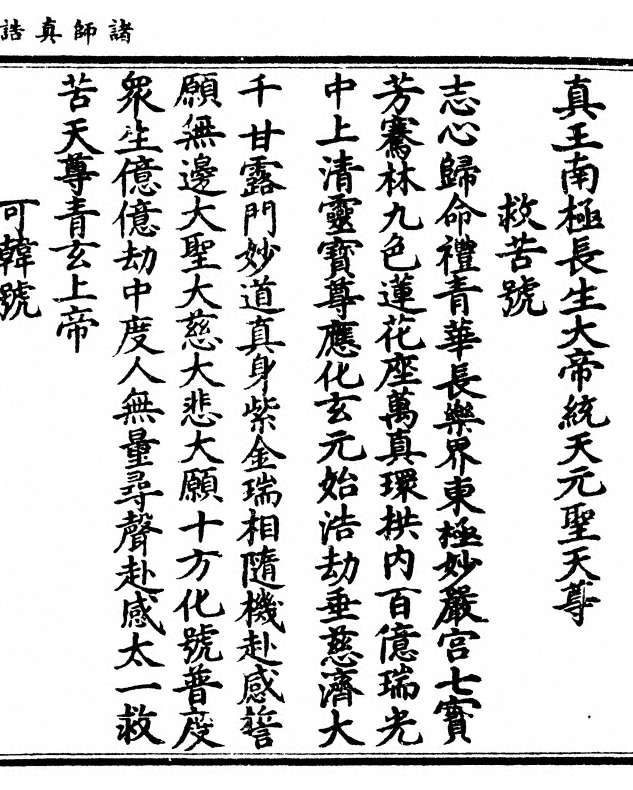 諸師真誥
真王南極長生大帝統天元聖天尊
救苦號
志心歸命禮青華長樂界東極妙嚴宮七寶
芳騫林九色蓮花座萬真環拱内百億瑞光
中上清靈寶尊應化玄元始浩劫垂慈濟大
千甘露門妙道真身紫金瑞相隨機赴感誓
願無邊大聖大慈大悲大願十方化號普度
眾生億億劫中度人無量尋聲赴感太一救
苦天尊青玄上帝
可韓號